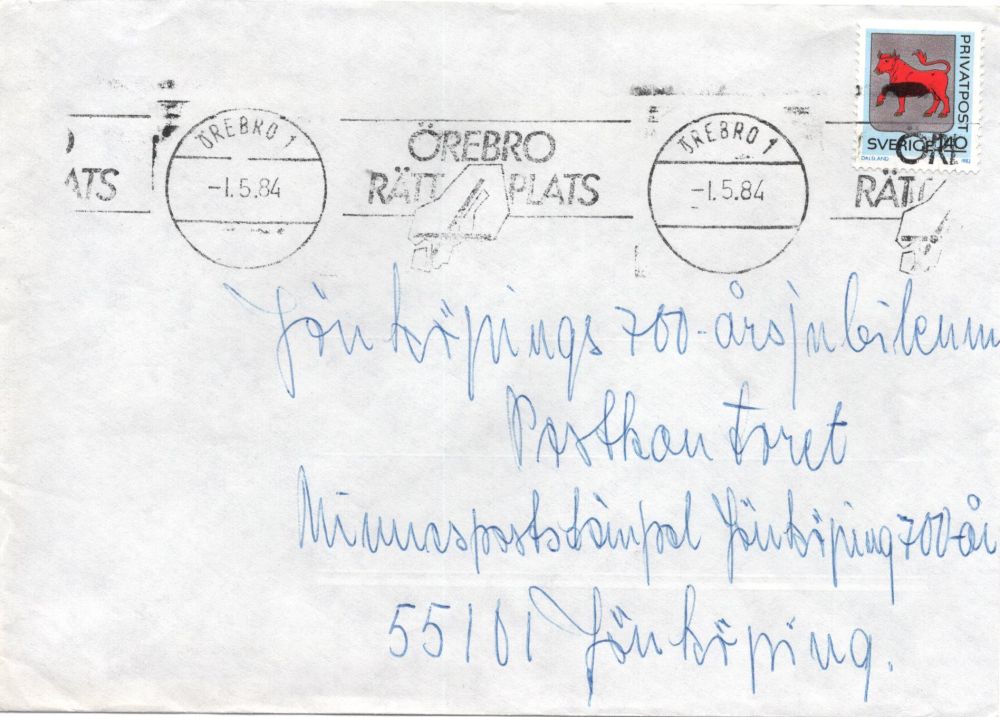 PRIVATPOST
SVERIGE 140
DALSLAND 1982
ÖREBRO 1
-1.5.84
ÖREBRO
RÄTT PLATS
ÖREBRO 1
-1.5.84
ÖRE
RÄTT
ATS
Jönköpings 700-årsjubileum
Postkontoret
Minnespoststämpel Jönköping 700-år
55101 Jönköping.